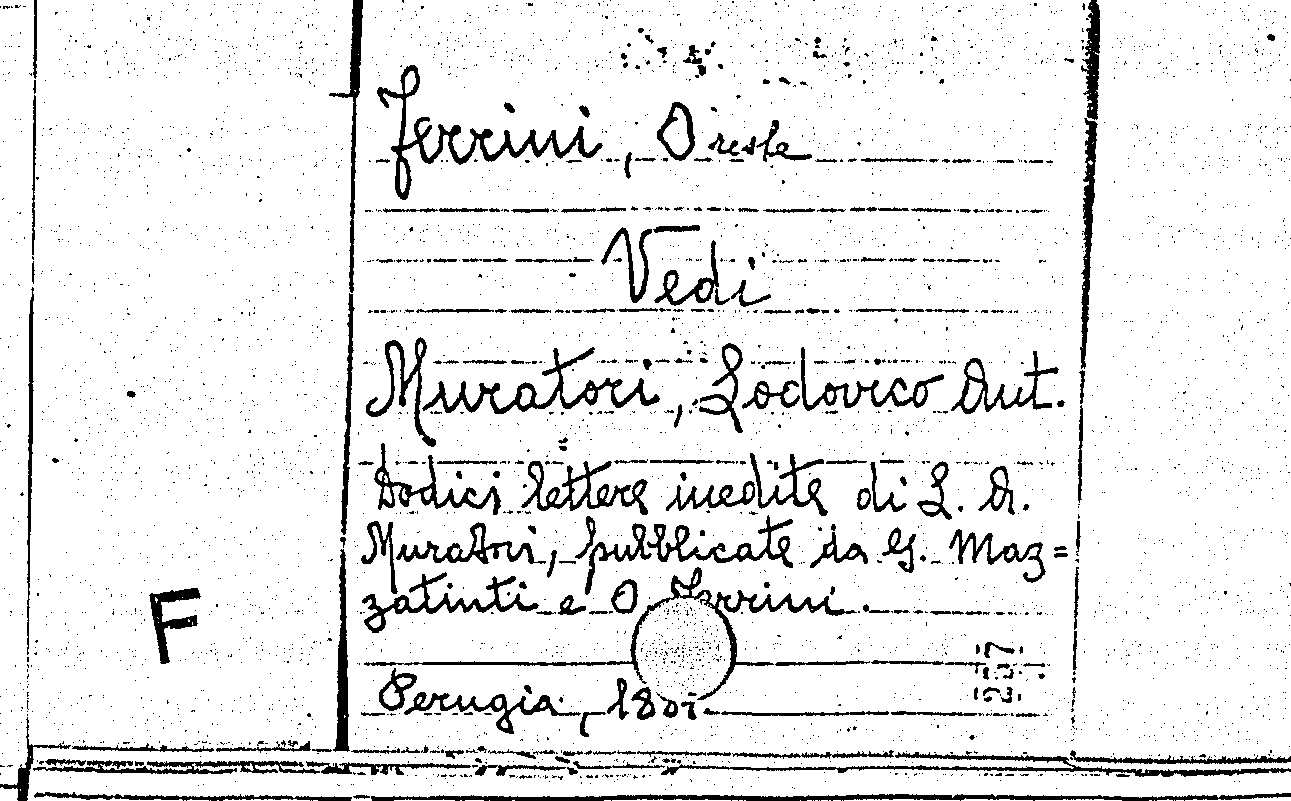 Ferrini, Oreste
Vedi
Muratori, Lodovico Ant.
Dodici lettere inedite di L. A.
Muratori, pubblicate da G. Maz=
zatinti e O. Ferrini.
F
Perugia,